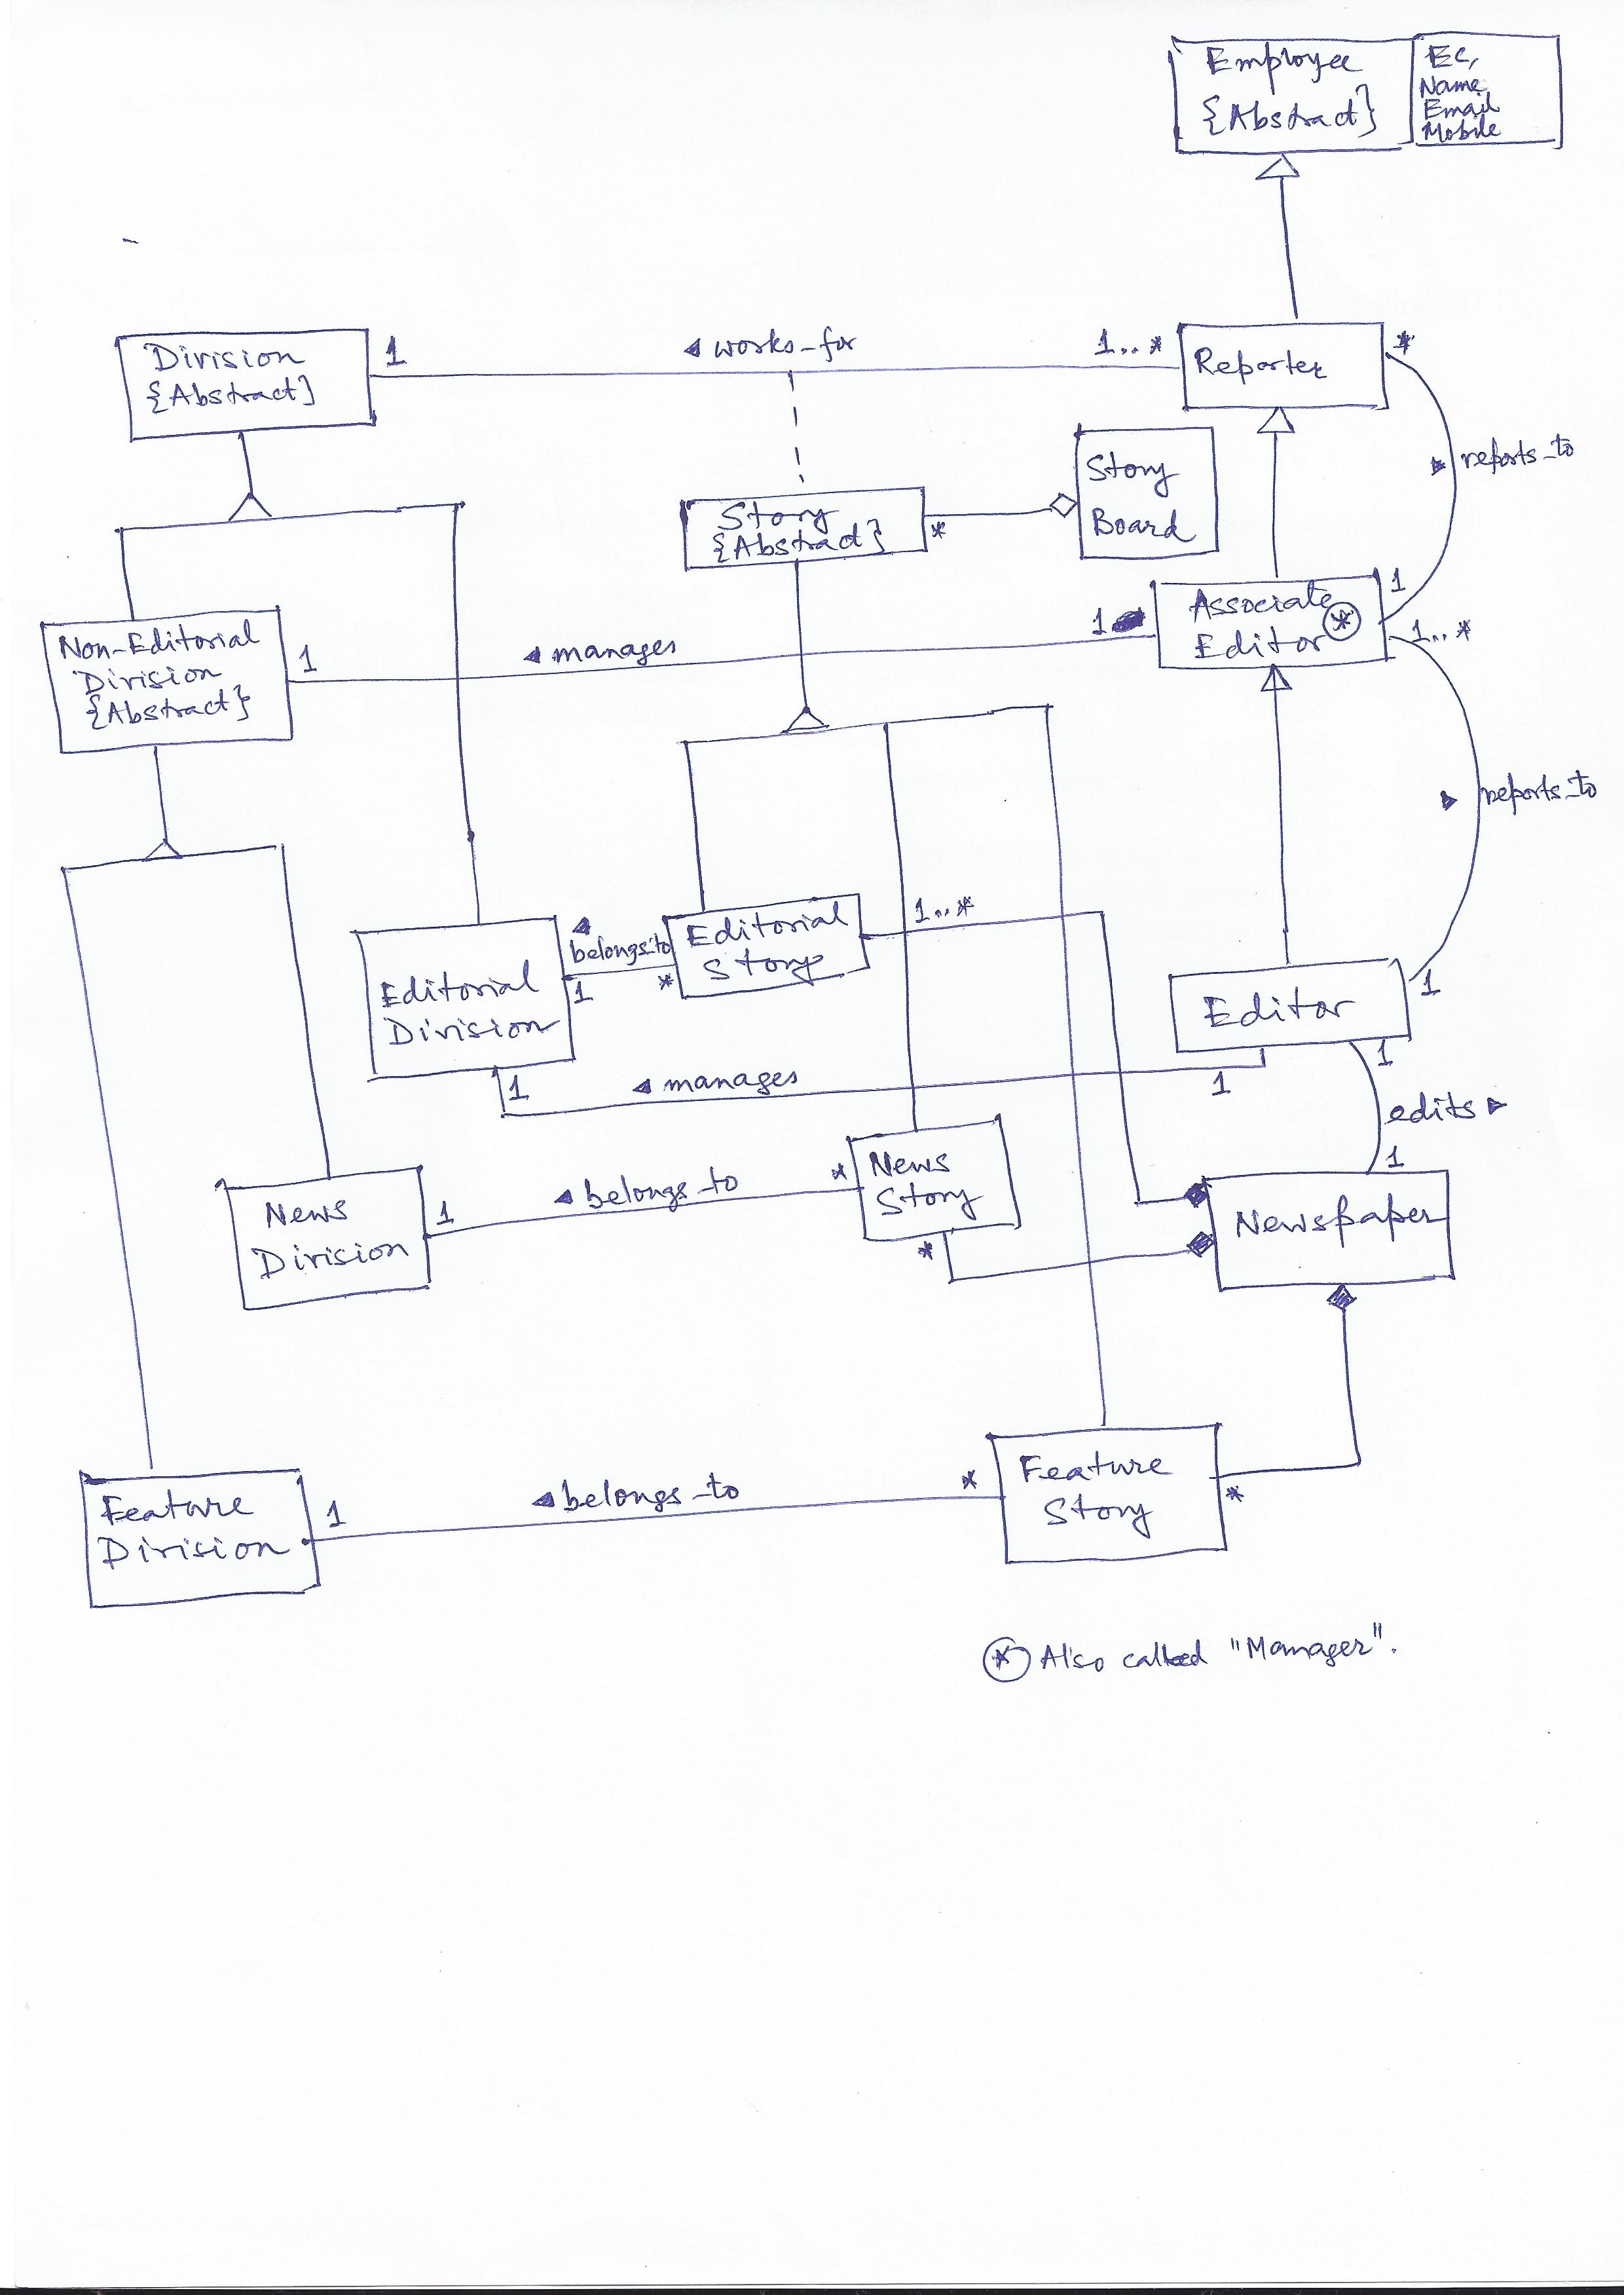 Employee
{Abstract}
EC,
Name
Email
Mobile
Division
{Abstract}
1
◄ works_for
1..*
Reporter
*
► reports_to
Story
{Abstract}
*
Story
Board
Non-Editorial
Division
{Abstract}
1
◄ manages
1
Associate
Editor *
1
1..*
► reports_to
Editorial
Division
◄
belongs_to
1
*
Editorial
Story
1..*
Editor
1
1
◄ manages
1
1
edits ►
1
News
Division
1
◄ belongs_to
*
News
Story
*
Newspaper
Feature
Division
1
◄ belongs_to
*
Feature
Story
*
* Also called "Manager".